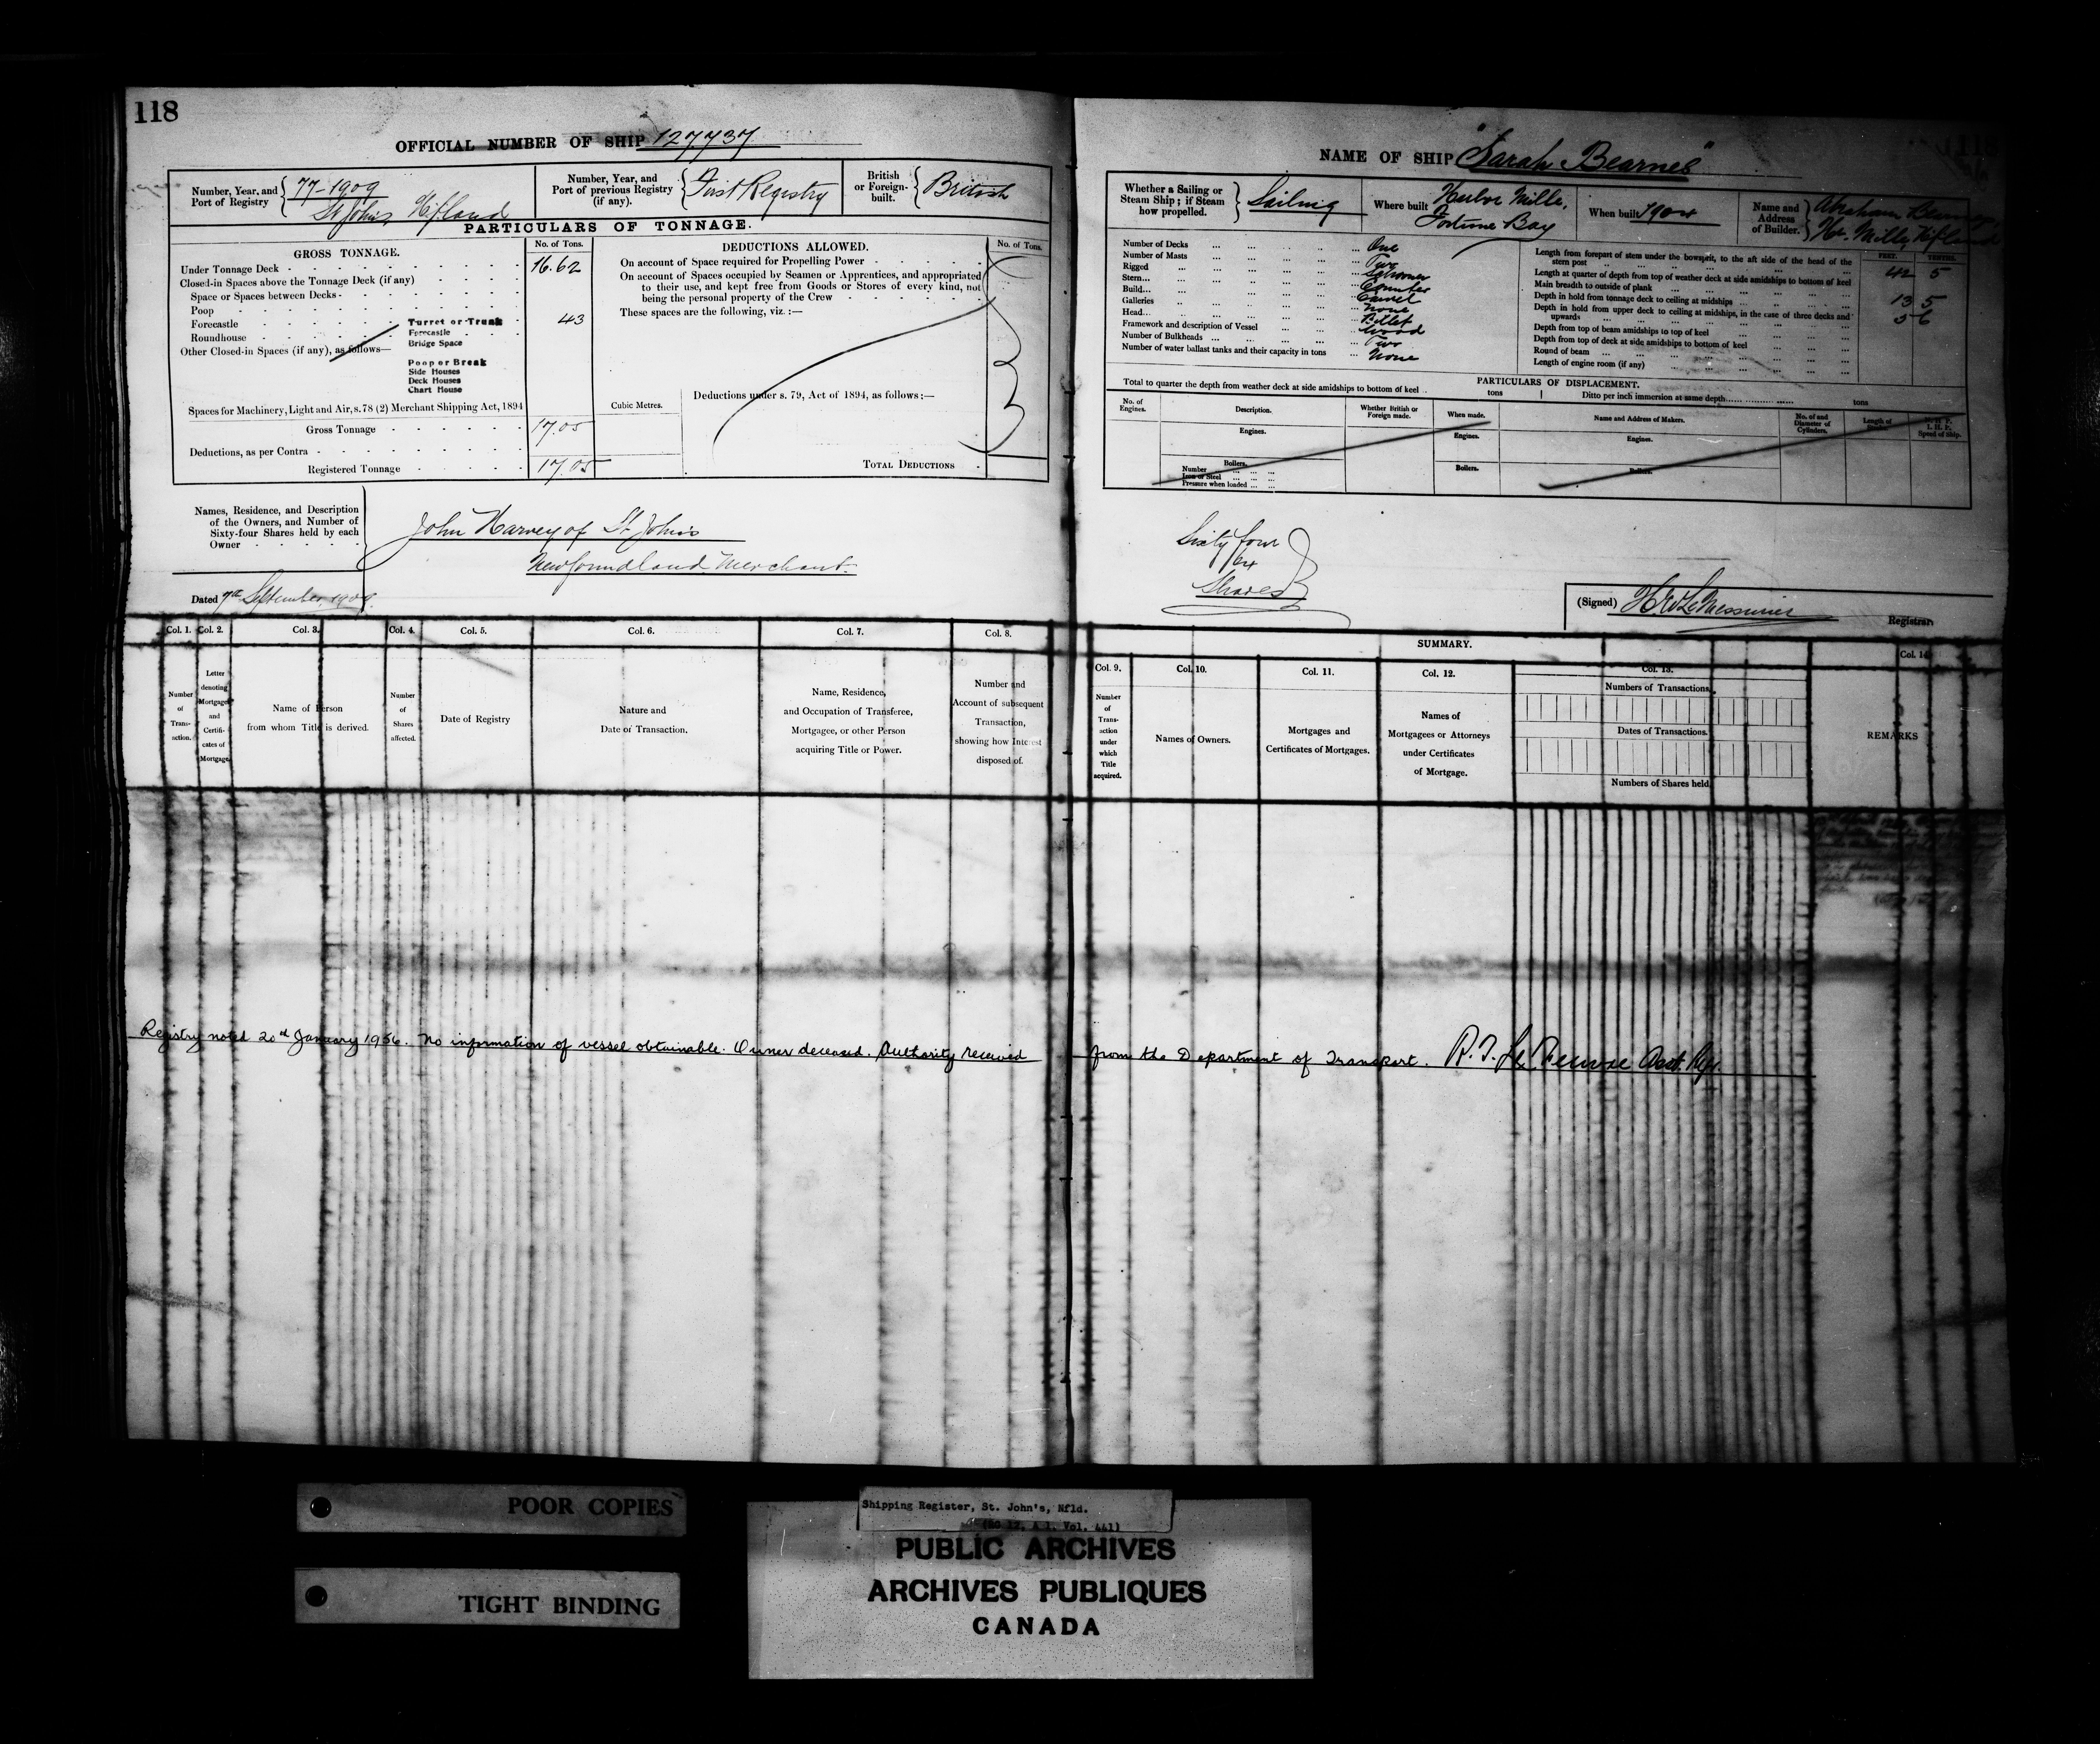 118
OFFICIAL NUMBER OF SHIP 127737
Number, Year, and Port of Registry 77-1909 St John's Nfland
Number, Year, and Port of previous Registry (if any). First Registry
British or Foreign-built. British
PARTICULARS OF TONNAGE.
GROSS TONNAGE.
No. of Tons.
Under Tonnage Deck 16.62
Closed-in Spaces above the Tonnage Deck (if any)
Space or Spaces between Decks
Poop
Forecastle
Roundhouse
Other Closed-in Spaces (if any), as follows—
Turret or Trunk 43
Forecastle
Bridge Space
Poop or Break
Side Houses
Deck Houses
Chart House
Spaces for Machinery, Light and Air, s.78 (2) Merchant Shipping Act, 1894
Gross Tonnage 17.05
Deductions, as per Contra
Registered Tonnage 17.05
DEDUCTIONS ALLOWED.
No. of Tons.
On account of Space required for Propelling Power
On account of Spaces occupied by Seamen or Apprentices, and appropriated
to their use, and kept free from Goods or Stores of every kind, not
being the personal property of the Crew
These spaces are the following, viz.:—
Cubic Metres.
Deductions under s. 79, Act of 1894, as follows:—
TOTAL DEDUCTIONS
Names, Residence, and Description
of the Owners, and Number of
Sixty-four Shares held by each
Owner
John Harvey of St John's
Newfoundland Merchant.
Dated 7th September, 1909.
NAME OF SHIP "Sarah Bearnes"
Whether a Sailing or Steam Ship; if Steam how propelled. Sailing
Where built Harbor Mille, Fortune Bay
When built 1904
Name and Address of Builder. Abraham
Hr. Mille, Nfland
Number of Decks One
Number of Masts Two
Rigged Schooner
Stern Counter
Build Carvel
Galleries None
Head Billet
Framework and description of Vessel Wood
Number of Bulkheads Two
Number of water ballast tanks and their capacity in tons None
FEET. TENTHS.
Length from forepart of stem under the bowsprit, to the aft side of the head of the
stern post 42 5
Length at quarter of depth from top of weather deck at side amidships to bottom of keel
Main breadth to outside of plank 13 5
Depth in hold from tonnage deck to ceiling at midships 5 6
Depth in hold from upper deck to ceiling at midships, in the case of three decks and
upwards
Depth from top of beam amidships to top of keel
Depth from top of deck at side amidships to bottom of keel
Round of beam
Length of engine room (if any)
PARTICULARS OF DISPLACEMENT.
Total to quarter the depth from weather deck at side amidships to bottom of keel tons
Ditto per inch immersion at same depth tons
No. of Engines.
Description.
Whether British or Foreign made.
When made.
Name and Address of Makers.
No. of and Diameter of Cylinders.
Length of
Speed of Ship.
Engines.
Engines.
Engines.
Boilers.
Number
Iron or Steel
Pressure when loaded
Boilers.
Boilers.
Sixty four
64
Shares
(Signed) H W LeMessurier
Registrar
SUMMARY.
Col. 1. Col. 2. Col. 3. Col. 4. Col. 5. Col. 6. Col. 7. Col. 8.
Number of Transaction.
Letter denoting Mortgages and Certificates of Mortgage.
Name of Person from whom Title is derived.
Number of Shares affected.
Date of Registry
Nature and Date of Transaction.
Name, Residence, and Occupation of Transferee, Mortgagee, or other Person acquiring Title or Power.
Number and Account of subsequent Transaction, showing how Interest disposed of.
Col. 9. Col. 10. Col. 11. Col. 12. Col. 13. Col. 14
Number of Transaction under which Title acquired.
Names of Owners.
Mortgages and Certificates of Mortgages.
Names of Mortgagees or Attorneys under Certificates of Mortgage.
Numbers of Transactions.
Dates of Transactions.
Numbers of Shares held
REMARKS
Registry noted 20th January 1956. No information of vessel obtainable. Owner deceased. Authority received
from the Department of Transport. Asst. Rgr.
POOR COPIES
TIGHT BINDING
Shipping Register, St. John's, Nfld.
(RG 12, A 1, Vol. 441)
PUBLIC ARCHIVES
ARCHIVES PUBLIQUES
CANADA